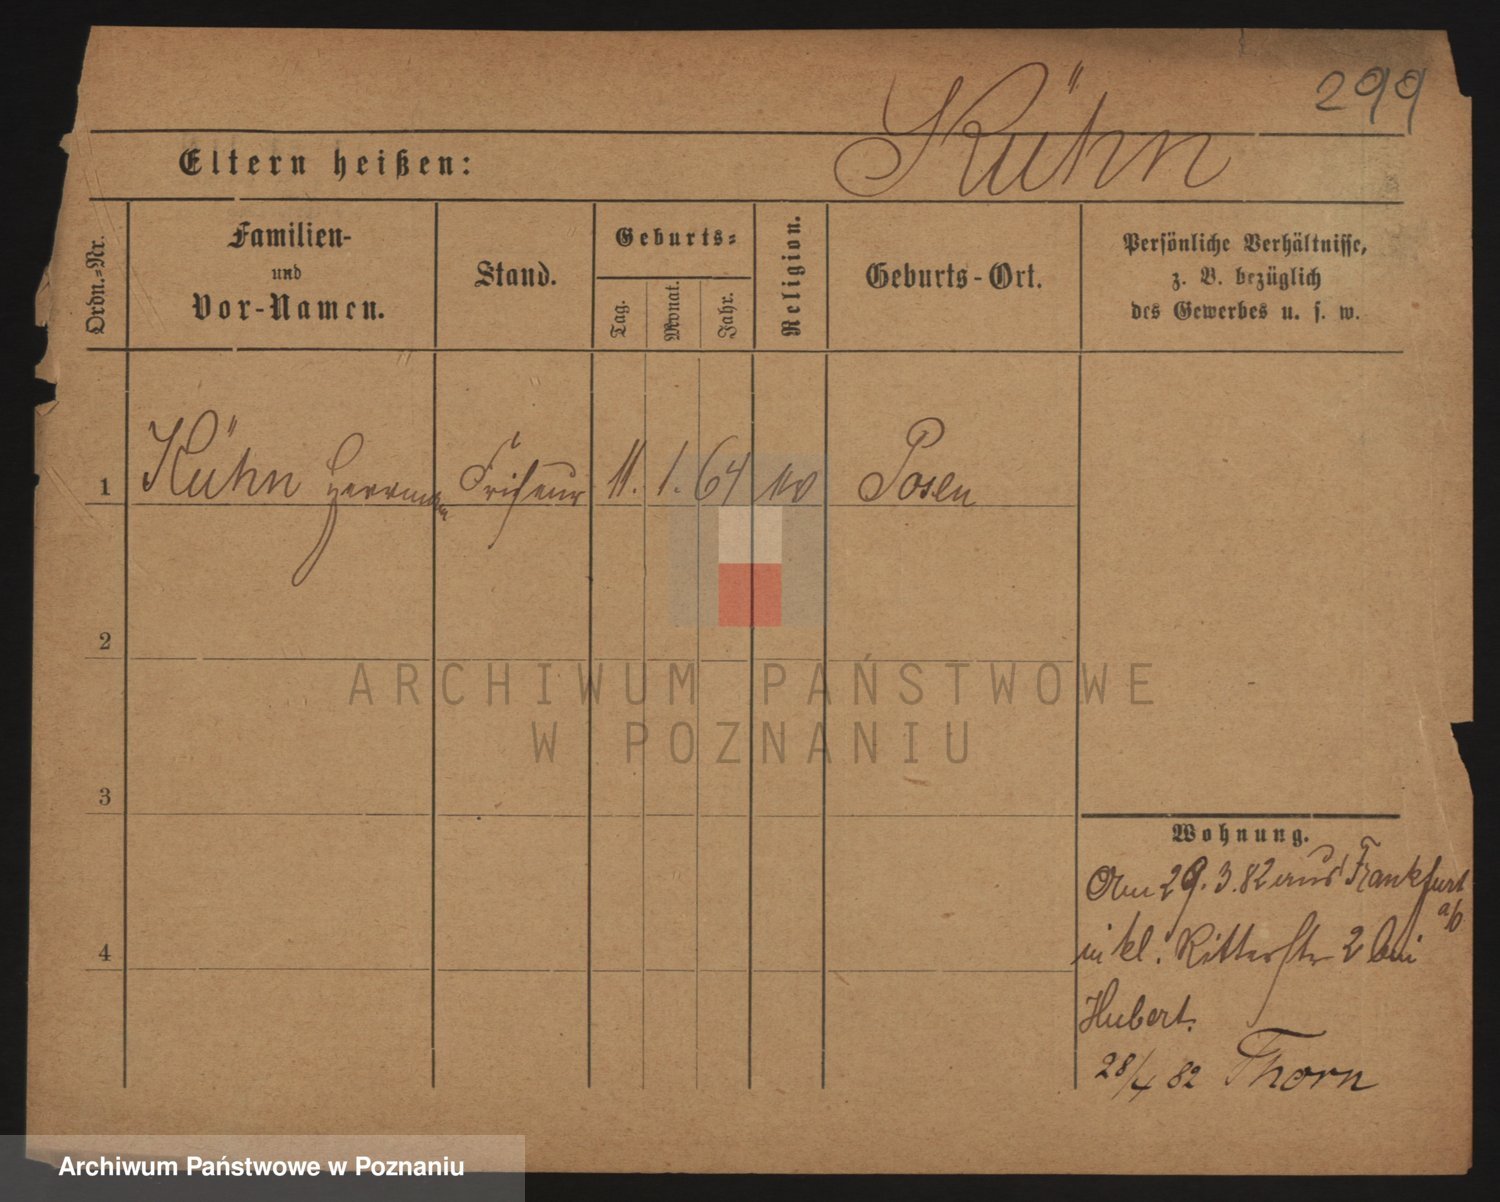 299
Kühn
Eltern heißen:
Ordn.-Nr.
Familien-
und
Vor-Namen.
Stand.
Geburts-
Tag.
Monat.
Jahr.
Religion.
Geburts-Ort.
Persönliche Verhältnisse,
z. B. bezüglich
des Gewerbes u. s. w.
1 Kühn Herrmann Friseur 11. 1. 64 Posen
2
3
4
Wohnung.
Am 29.3.82 aus Frankfurt
a/O
in kl. Ritterstr 2 bei
Hubert.
28/4 82 Thorn
ARCHIWUM PAŃSTWOWE
W POZNANIU
Archiwum Państwowe w Poznaniu